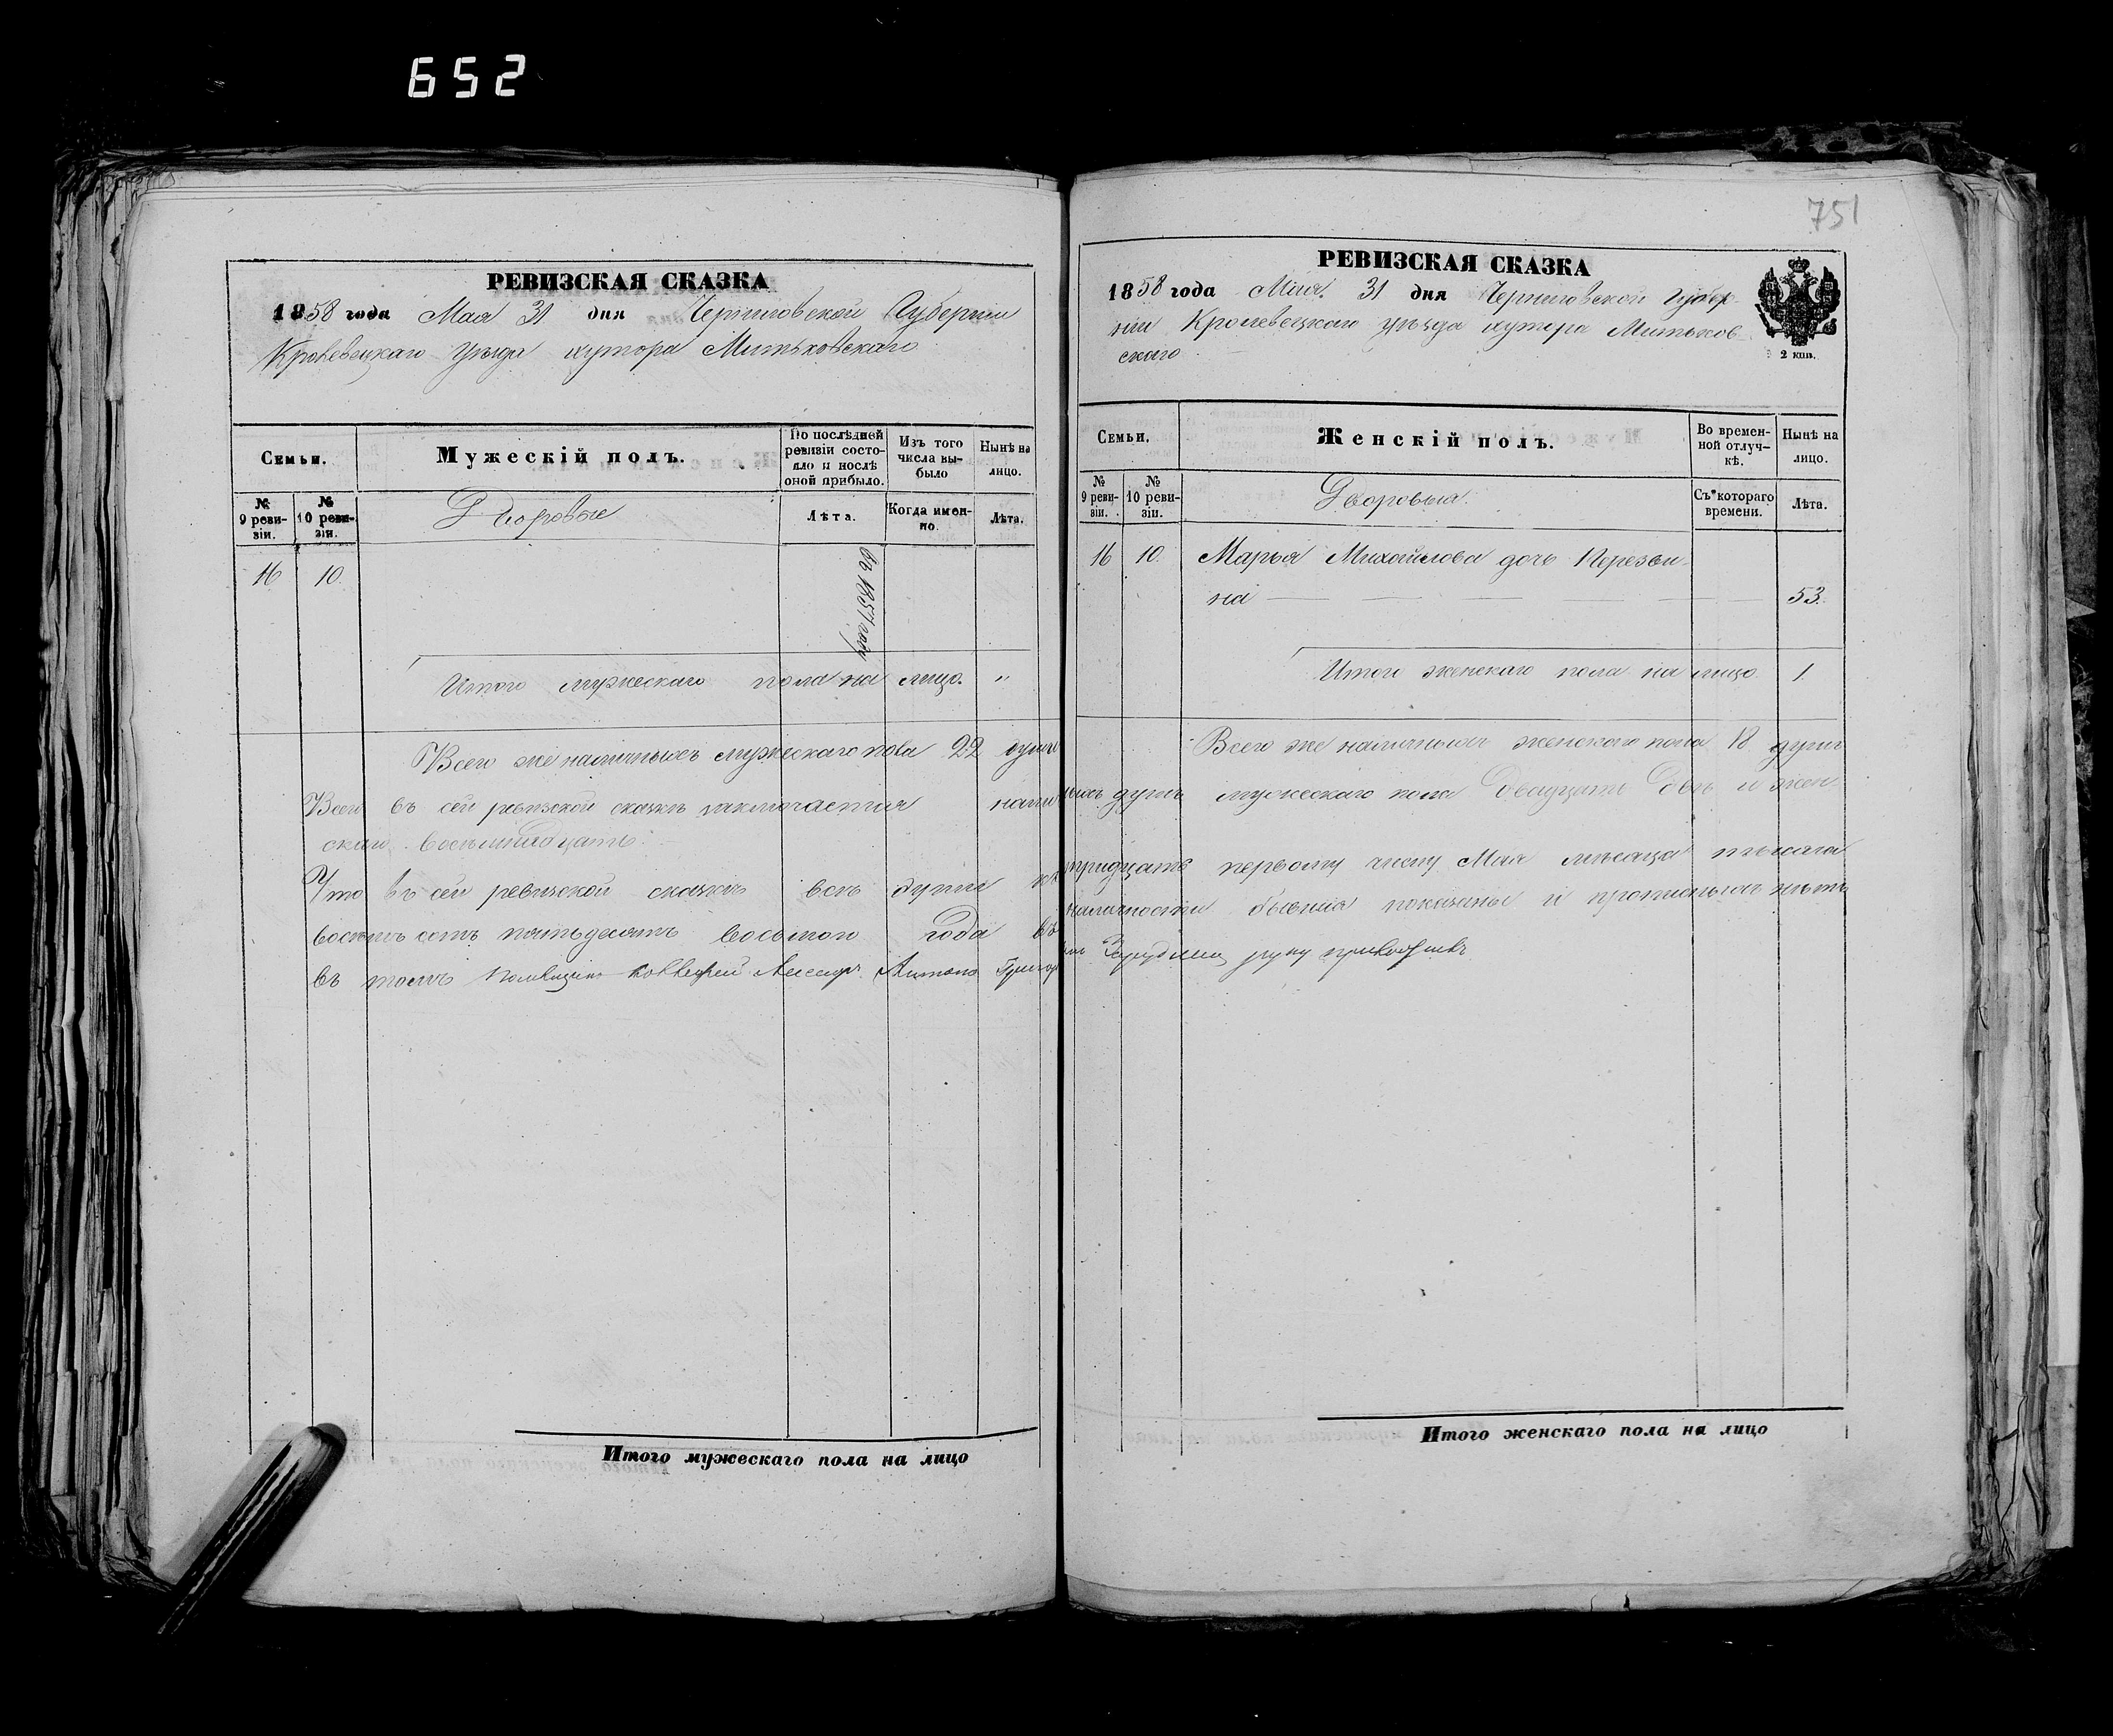 652
РЕВИЗСКАЯ СКАЗКА
1858 года Мая 31 дня Черниговской Губернии
Кролевецкаго уѣзда хутора Митьковскаго
Семьи.
Мужескій полъ.
По послѣдней ревизіи состояло и послѣ оной прибыло.
Изъ того числа выбыло
Нынѣ на лицо.
№ 9 ревизіи.
№ 10 ревизіи.
Дворовые
Лѣта.
Когда именно.
Лѣта.
16 10.
въ 1857 году
Итого мужескаго пола на лицо. "
Всего же наличныхъ мужескаго пола 22 души
Всего въ сей ревизской сказкѣ заключается нали
скаго восемнадцать.
Что въ сей ревизской сказкѣ всѣ души къ
восемь сотъ пятьдесятъ восьмого года въ
въ томъ Помѣщикъ Антонъ Григор
Итого мужескаго пола на лицо
751
РЕВИЗСКАЯ СКАЗКА
1858 года Мая 31 дня Черниговской Губер-
ніи Кролевецкаго уѣзда хутора Митьков-
скаго
2 коп.
Семьи.
Женскій полъ.
Во временной отлучкѣ.
Нынѣ на лицо.
№ 9 ревизіи.
№ 10 ревизіи.
Дворовыя.
Съ котораго времени.
Лѣта.
16 10. Марья Михайлова дочь Перезви-
на 53.
Итого женскаго пола на лицо 1.
Всего же наличныхъ женскаго пола 18 душъ
ныхъ душъ мужескаго пола двадцать двѣ и жен-
тридцать первому числу Мая мѣсяца тысяча
наличности бывшія показаны и прописныхъ нѣтъ
руку приложилъ
Итого женскаго пола на лицо